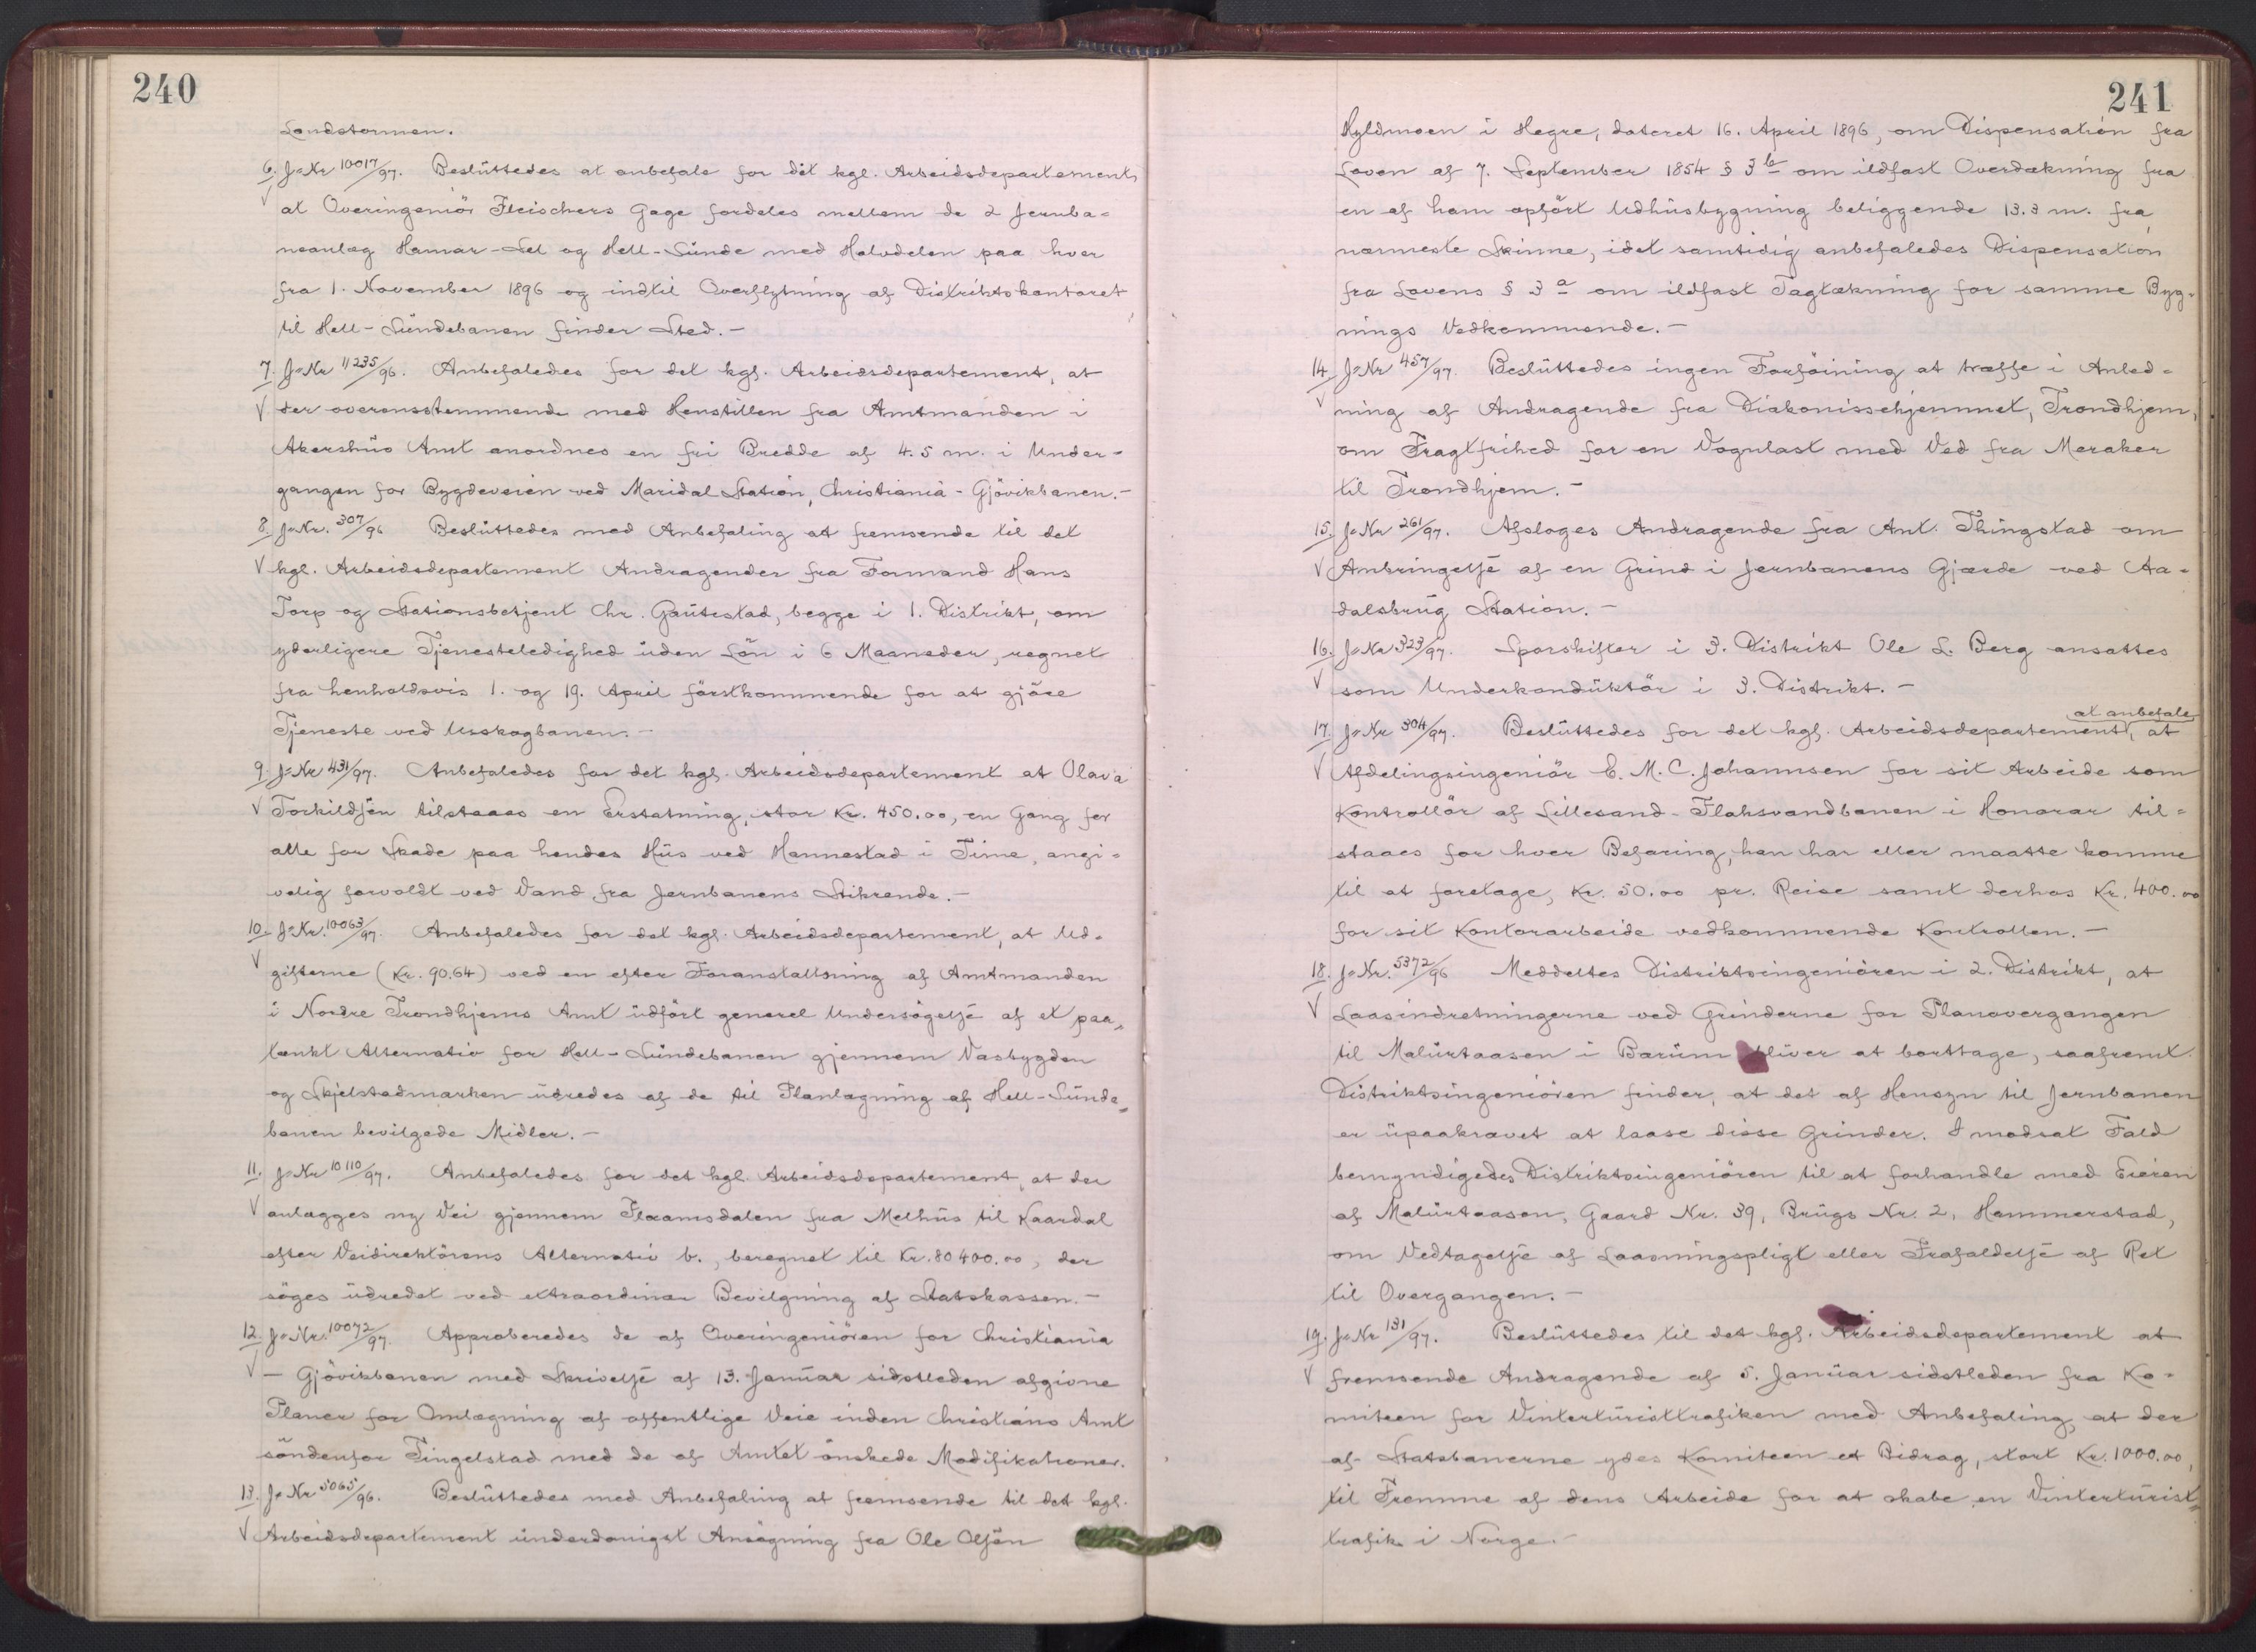 240
Landstormen.
6. J=Nr 10017/97. Beslüttedes at anbefale for det kgl. Arbeidsdepartement,
√ at Overingeniör Fleischers Gage fordeles mellem de 2 Jernba=
neanlæg Hamar-Sel og Hell-Sünde med Halvdelen paa hver
fra 1. November 1896 og indtil Overflytning af Distriktskontoret
til Hell-Sündebanen finder Sted.-
7. J=Nr 11235/96. Anbefaledes for det kgl. Arbeidsdepartement, at
√ der overensstemmende med Henstillen fra Amtmanden i
Akershüs Amt anordnes en fri Bredde af 4.5 m. i Under-
gangen for Bygdeveien ved Maridal Station, Christiania-Gjövikbanen.-
8. J=Nr. 307/96 Beslüttedes med Anbefaling at fremsende til det
√ kgl. Arbeidsdepartement Andragender fra Formand Hans
Torp og Stationsbetjent Chr. Gaütestad, begge i 1. Distrikt, om
yderligere Tjenesteledighed üden Lön i 6 Maaneder, regnet
fra henholdsvis 1. og 19. April förstkommende for at gjöre
Tjeneste ved Urskogbanen.-
9. J=Nr 431/97. Anbefaledes for det kgl. Arbeidsdepartement at Olava
√ Torkildsen tilstaaes en Erstatning, stor Kr. 450.00, en Gang for
alle for Skade paa hendes Hüs ved Hennestad i Time, angi=
velig forvoldt ved Vand fra Jernbanens Stikrende.-
10. J=Nr. 10063/97. Anbefaledes for det kgl. Arbeidsdepartement, at Ud=
√ gifterne (Kr. 90.64) ved en efter Foranstaltning af Amtmanden
i Nordre Trondhjems Amt üdfört generel Undersögelse af et paa=
tænkt Alternativ for Hell-Sündebanen gjennem Vasbygden
og Skjelstadmarken üdredes af de til Planlægning af Hell-Sünde=
banen bevilgede Midler.-
11. J=Nr 10110/97. Anbefaledes for det kgl. Arbeidsdepartement, at der
√ anlægges ny Vei gjennem Flaamsdalen fra Melhüs til Kaardal
efter Veidirektörens Alternativ b., beregnet til Kr. 80400.00, der
söges üdredet ved extraordinær Bevilgning af Statskassen.-
12. J=Nr. 10072/97. Approberedes de af Overingeniören for Christiania
√ - Gjövikbanen med Skrivelse af 13. Janüar sidstleden afgivne
Planer for Omlægning af offentlige Veie inden Christians Amt
söndenfor Tingelstad med de af Amtet önskede Modifikationer.
13. J=Nr 5065/96. Beslüttedes med Anbefaling at fremsende til det kgl.
√ Arbeidsdepartement ünderdanigst Ansögning fra Ole Olsen
241
Hyldmoen i Hegre, dateret 16. April 1896, om Dispensation fra
Loven af 7. September 1854 § 3 b om ildfast Overdækning fra
en af ham opfört Udhüsbygning beliggende 13.3 m. fra
nærmeste Skinne, idet samtidig anbefaledes Dispensation
fra Lovens § 3 a om ildfast Tagtækning for samme Byg=
nings Vedkommende.-
14. J=Nr 457/97. Beslüttedes ingen Forföining at træffe i Anled=
√ ning af Andragende fra Diakonissehjemmet, Trondhjem,
om Fragtfrihed for en Vognlast med Ved fra Meraker
til Trondhjem.-
15. J=Nr 261/97. Afsloges Andragende fra Ant. Thingstad om
√ Anbringelse af en Grind i Jernbanens Gjærde ved Aa=
dalsbrüg Station.-
16. J=Nr 323/97. Sporskifter i 3. Distrikt Ole L. Berg ansattes
√ som Underkondüktör i 3. Distrikt.-
at anbefale
17. J=Nr 304/97. Beslüttedes for det kgl. Arbeidsdepartement, at
√ Afdelingsingeniör E. M. C. Johannsen for sit Arbeide som
Kontrollör af Lillesand-Flaksvandbanen i Honorar til=
staaes for hver Befaring, han har eller maatte komme
til at foretage, Kr. 50.00 pr. Reise samt derhos Kr. 400.00
for sit Kontorarbeide vedkommende Kontrollen.-
18. J=Nr. 5372/96 Meddeltes Distriktsingeniören i 2. Distrikt, at
√ Laasindretningerne ved Grinderne for Planovergangen
til Malürtaasen i Barüm bliver at borttage, saafremt
Distriktsingeniören finder, at det af Hensyn til Jernbanen
er üpaakrævet at laase disse Grinder. I modsat Fald
bemyndigedes Distriktsingeniören til at forhandle med Eieren
af Malürtaasen, Gaard Nr. 39, Brügs Nr. 2, Hammerstad,
om Vedtagelse af Laasningspligt eller Frafaldelse af Ret
til Overgangen.-
19. J=Nr 131/97. Beslüttedes til det kgl. Arbeidsdepartement at
√ fremsende Andragende af 5. Janüar sidstleden fra Ko=
miteen for Vintertüristtrafiken med Anbefaling, at der
af Statsbanerne ydes Komiteen et Bidrag, stort Kr. 1000.00,
til Fremme af dens Arbeide for at skabe en Vintertürist=
trafik i Norge.-